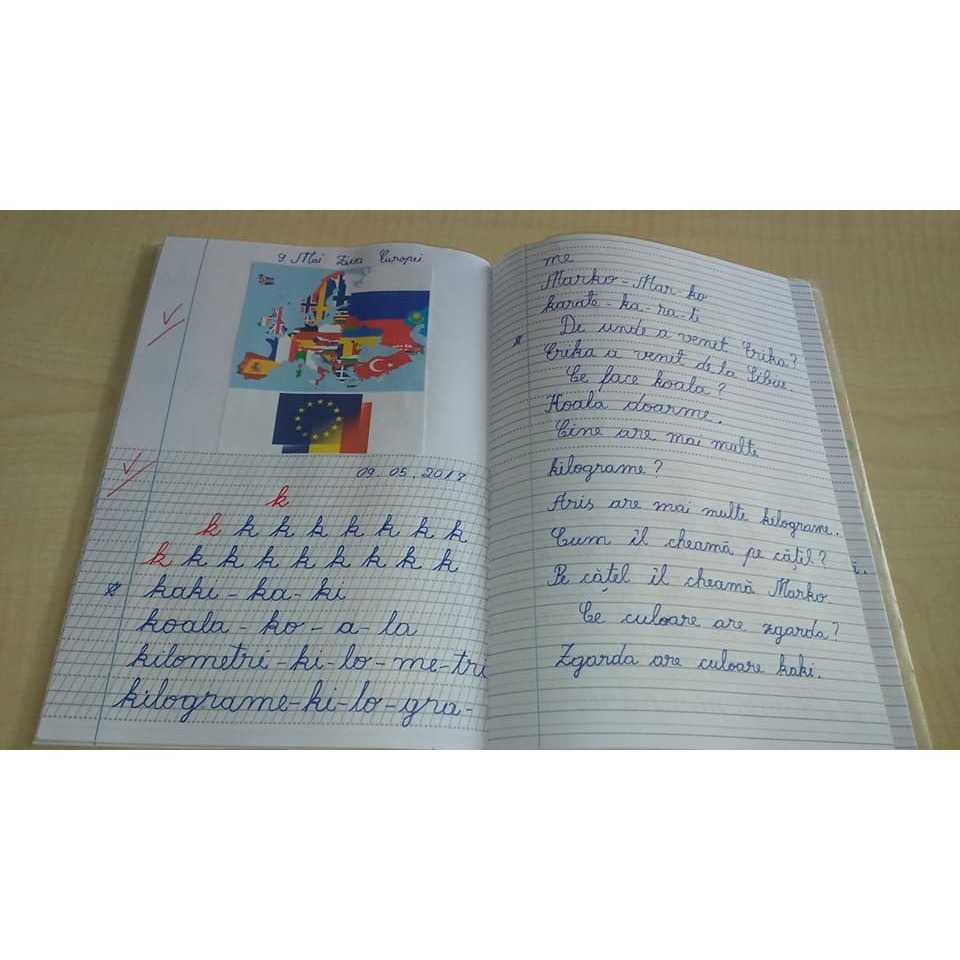 9 Mai Ziua Europei
09.05.2017
k
k k k k k k k k
k k k k k k k k k
kaki - ka - ki
koala - ko - a - la
kilometri - ki - lo - me - tri
kilograme - ki - lo - gra -
me
Marko - Mar ko
karate - ka - ra - te
De unde a venit Erika?
Erika a venit de la Sibiu.
Ce face koala?
Koala doarme.
Cine are mai multe
kilograme?
Aris are mai multe kilograme.
Cum îl cheamă pe cățel?
Pe cățel îl cheamă Marko.
Ce culoare are zgarda?
Zgarda are culoare kaki.